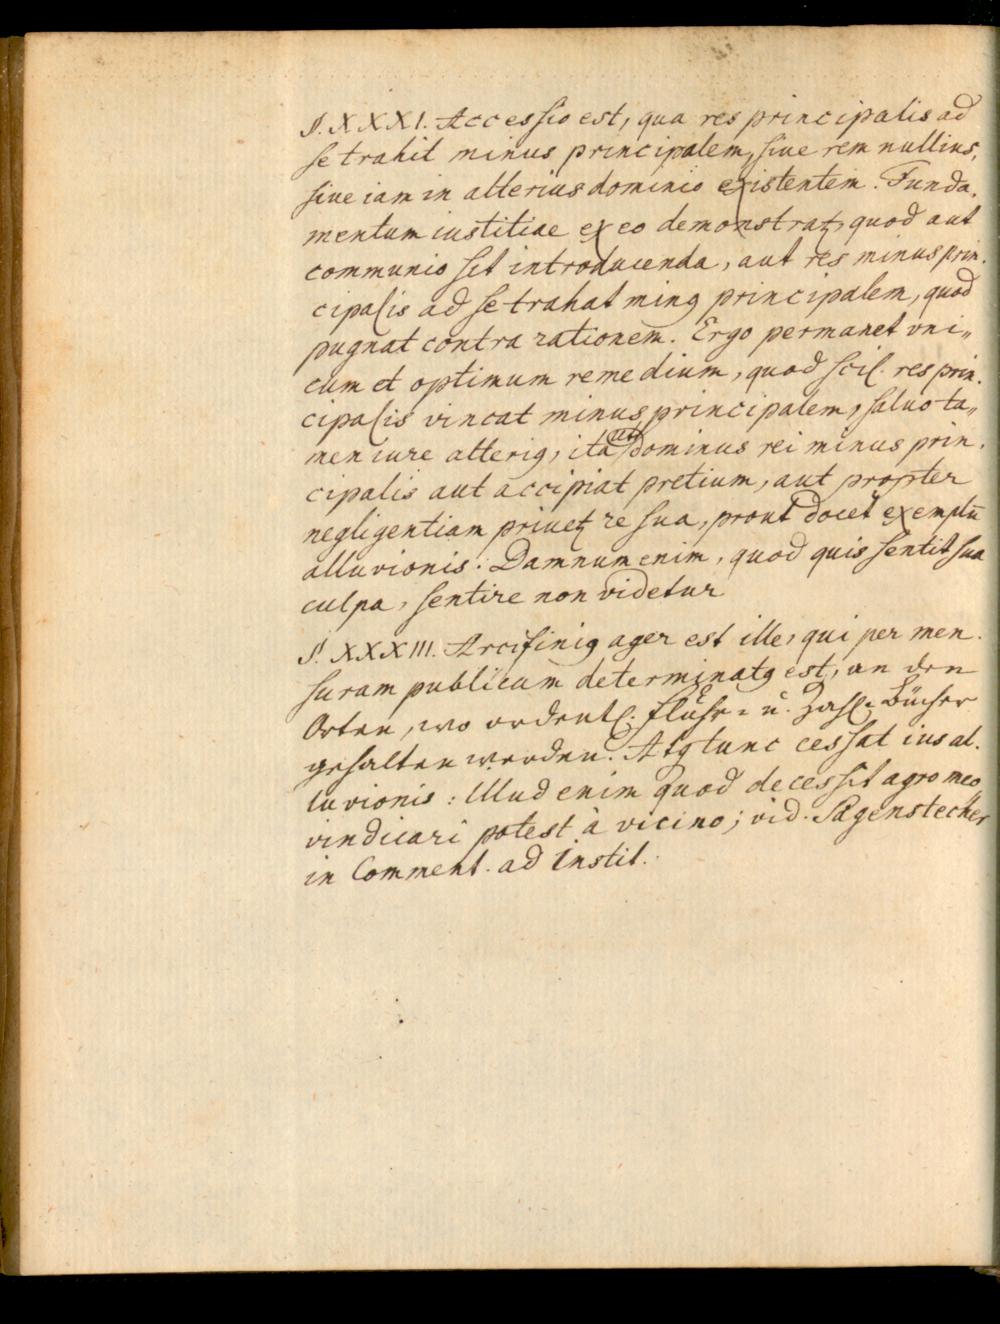 §. XXXI. Accessio est, qua res principalis ad
se trahit minus principalem, siue rem nullius,
siue iam in alterius dominio existentem. Funda-
mentum iustitiae ex eo demonstratꝛ, quod aut
communio sit introducenda, aut res minus prin-
cipalis ad se trahat minꝰ principalem, quod
pugnat contra rationem. Ergo permanet vni-
cum et optimum remedium, quod scil. res prin-
cipalis vincat minus principalem, saluo ta-
men iure alteriꝰ, ita ut dominus rei minus prin-
cipalis aut accipiat pretium, aut propter
negligentiam priuetꝛ re sua, prout docet exemplū
alluvionis. Damnum enim, quod quis sentit sua
culpa, sentire non videtur
§. XXXIII. Arcifiniꝰ ager est ille, qui per men-
suram publicam determinatꝰ est, an den
Orten, wo ordentl. Fluhr- u. Zahl-Bücher
gehalten werden. Atq tunc cessat ius al-
luvionis: Illud enim quod decessit agro meo,
vindicari potest à vicino; vid. Sagenstecher
in Comment. ad Instit.